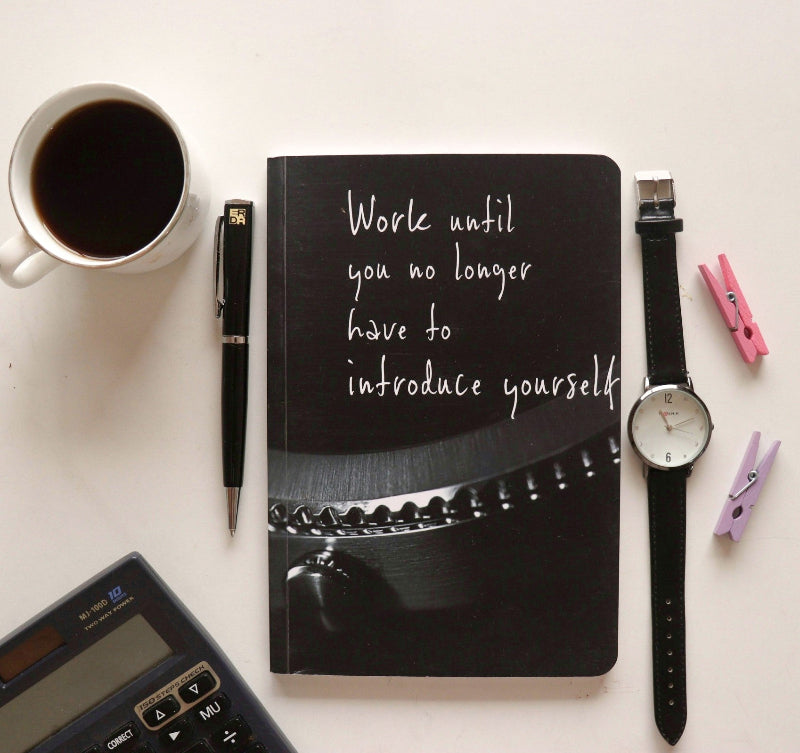 Work until
you no longer
have to
introduce yourself
ER
DA
12
6
MJ-100D
10
TWO WAY POWER
150 STEPS CHECK
CORRECT
MU
÷